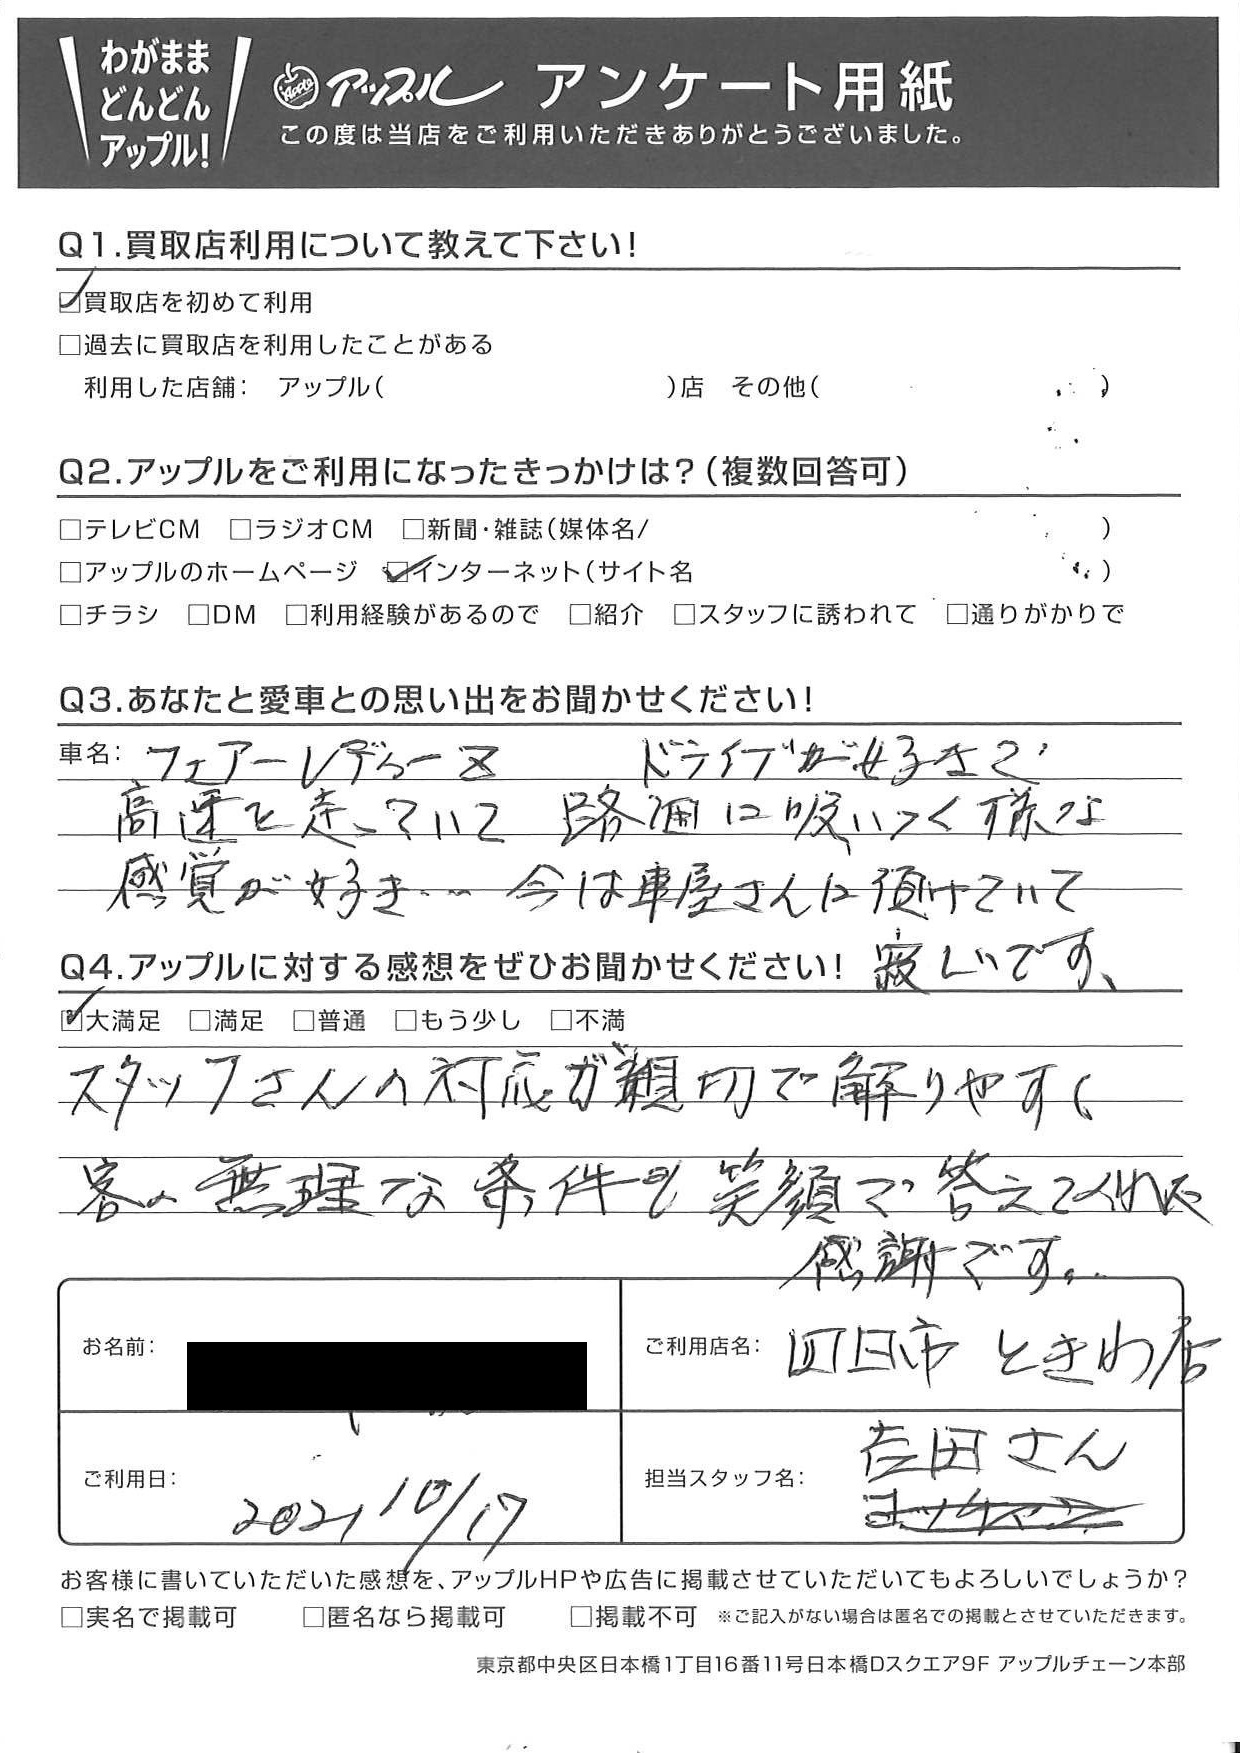 わがまま
どんどん
アップル!
Apple アップル アンケート用紙
この度は当店をご利用いただきありがとうございました。
Q1.買取店利用について教えて下さい!
☑買取店を初めて利用
□過去に買取店を利用したことがある
利用した店舗: アップル( )店 その他( )
Q2.アップルをご利用になったきっかけは?(複数回答可)
□テレビCM □ラジオCM □新聞・雑誌(媒体名/ )
□アップルのホームページ ☑インターネット(サイト名 )
□チラシ □DM □利用経験があるので □紹介 □スタッフに誘われて □通りがかりで
Q3.あなたと愛車との思い出をお聞かせください!
車名: フェアーレディーZ ドライブが好きで
高速を走っていて 路面に吸いつく様な
感覚が好き… 今は車屋さんに預けていて
寂しいです、
Q4.アップルに対する感想をぜひお聞かせください!
☑大満足 □満足 □普通 □もう少し □不満
スタッフさんの対応が親切で解りやすく
客の無理な条件も笑顔で答えてくれた
感謝です。
お名前:
ご利用店名: 四日市 ときわ店
ご利用日: 2021 10/17
担当スタッフ名: 吉田さん
お客様に書いていただいた感想を、アップルHPや広告に掲載させていただいてもよろしいでしょうか?
□実名で掲載可 □匿名なら掲載可 □掲載不可 ※ご記入がない場合は匿名での掲載とさせていただきます。
東京都中央区日本橋1丁目16番11号日本橋Dスクエア9F アップルチェーン本部